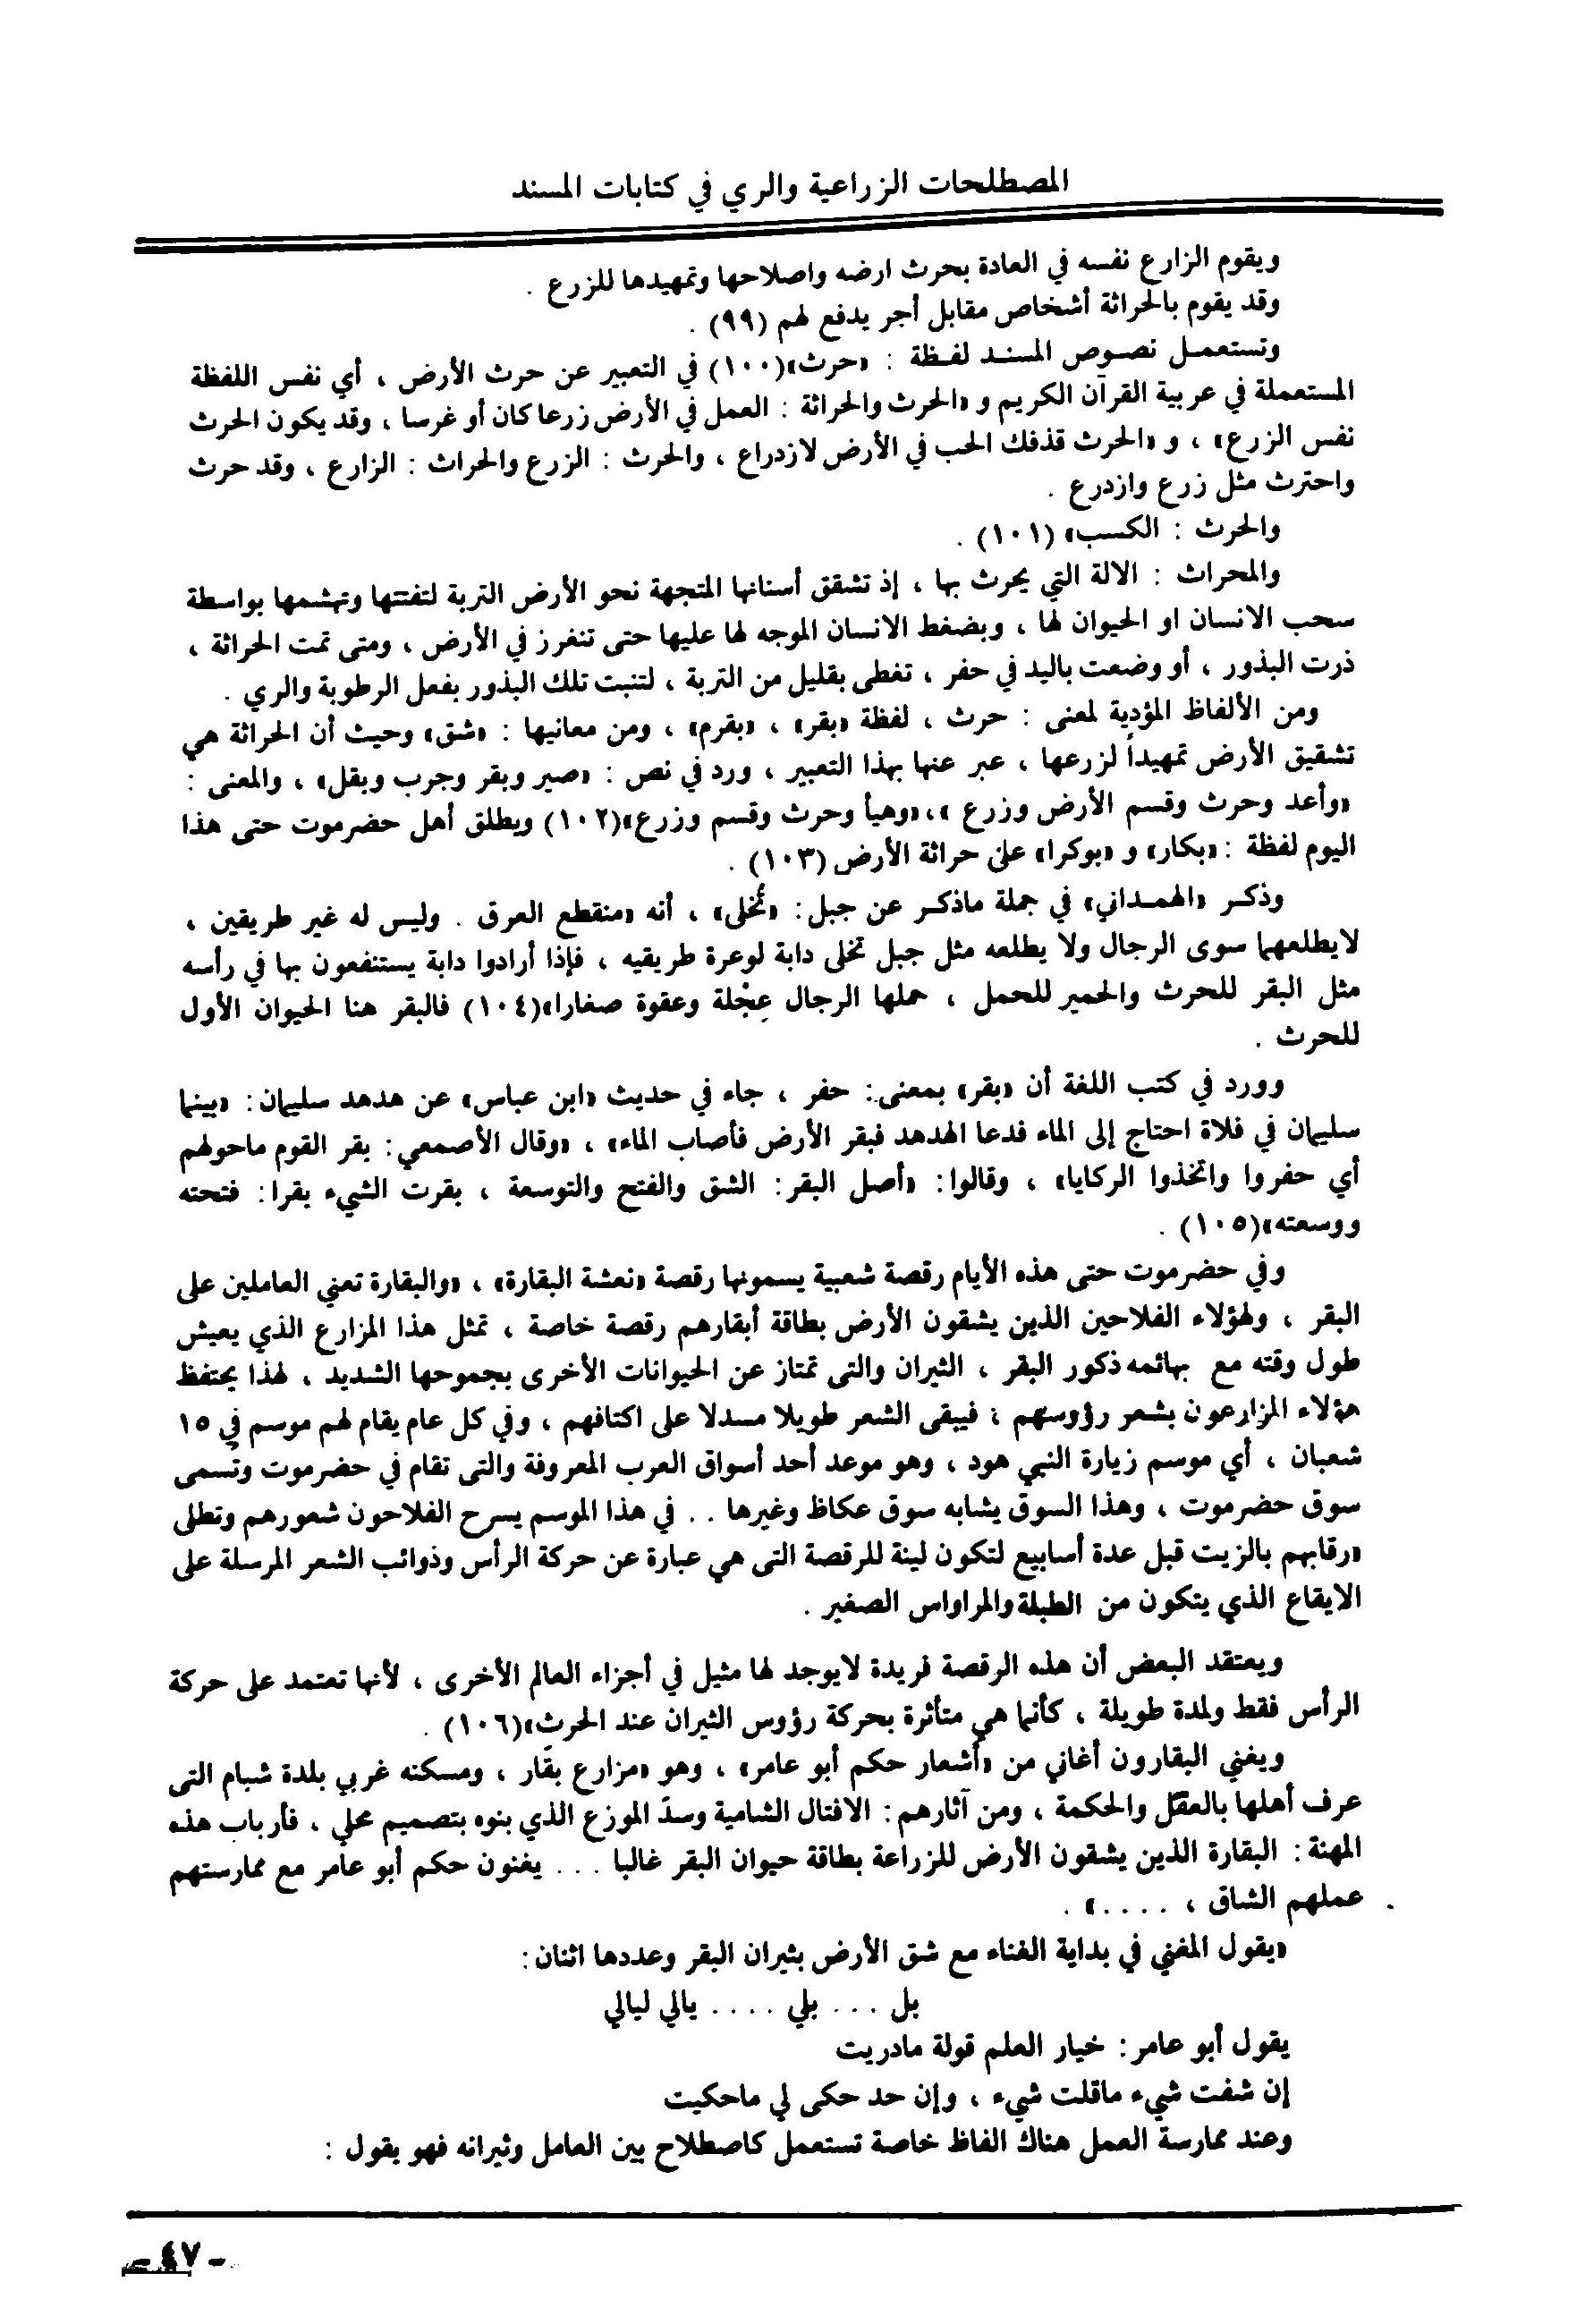 المصطلحات الزراعية والري في كتابات المسند
ويقوم الزارع نفسه في العادة بحرث ارضه واصلاحها وتمهيدها للزرع .
وقد يقوم بالحراثة أشخاص مقابل أجر يدفع لهم (٩٩) .
وتستعمل نصوص المسند لفظة : «حرث»(١٠٠) في التعبير عن حرث الأرض ، أي نفس اللفظة
المستعملة في عربية القرآن الكريم و «الحرث والحراثة : العمل في الأرض زرعا كان أو غرسا ، وقد يكون الحرث
نفس الزرع» ، و «الحرث قذفك الحب في الأرض لازدراع ، والحرث : الزرع والحراث : الزارع ، وقد حرث
واحترث مثل زرع وازدرع .
والحرث : الكسب» (١٠١) .
والمحراث : الالة التي يحرث بها ، إذ تشقق أسنانها المتجهة نحو الأرض التربة لتفتتها وتهشمها بواسطة
سحب الانسان او الحيوان لها ، وبضغط الانسان الموجه لها عليها حتى تنغرز في الأرض ، ومتى تمت الحراثة ،
ذرت البذور ، أو وضعت باليد في حفر ، تغطى بقليل من التربة ، لتنبت تلك البذور بفعل الرطوبة والري .
ومن الألفاظ المؤدية لمعنى : حرث ، لفظة «بقر» ، «بقرم» ، ومن معانيها : «شق» وحيث أن الحراثة هي
تشقيق الأرض تمهيداً لزرعها ، عبر عنها بهذا التعبير ، ورد في نص : «صير وبقر وجرب وبقل» ، والمعنى :
«وأعد وحرث وقسم الأرض وزرع »،«وهيأ وحرث وقسم وزرع»(١٠٢) ويطلق أهل حضرموت حتى هذا
اليوم لفظة : «بكار» و «بوكرا» على حراثة الأرض (١٠٣) .
وذكر «الهمداني» في جملة ماذكر عن جبل: «تُخلى» ، أنه «منقطع العرق . وليس له غير طريقين ،
لايطلعهما سوى الرجال ولا يطلعه مثل جبل تخلى دابة لوعرة طريقيه ، فإذا أرادوا دابة يستنفعون بها في رأسه
مثل البقر للحرث والحمير للحمل ، حملها الرجال عِجْلة وعقوة صغارا»(١٠٤) فالبقر هنا الحيوان الأول
للحرث .
وورد في كتب اللغة أن «بقر» بمعنى: حفر ، جاء في حديث «ابن عباس» عن هدهد سليمان: «بينما
سليمان في فلاة احتاج إلى الماء فدعا الهدهد فبقر الأرض فأصاب الماء» ، «وقال الأصمعي: بقر القوم ماحولهم
أي حفروا واتخذوا الركايا» ، وقالوا: «أصل البقر: الشق والفتح والتوسعة ، بقرت الشيء بقرا: فتحته
ووسعته»(١٠٥) .
وفي حضرموت حتى هذه الأيام رقصة شعبية يسمونها رقصة «نعشة البقارة» ، «والبقارة تعني العاملين على
البقر ، ولهؤلاء الفلاحين الذين يشقون الأرض بطاقة أبقارهم رقصة خاصة ، تمثل هذا المزارع الذي يعيش
طول وقته مع بهائمه ذكور البقر ، الثيران والتى تمتاز عن الحيوانات الأخرى بجموحها الشديد ، لهذا يحتفظ
هؤلاء المزارعون بشعر رؤوسهم ، فيبقى الشعر طويلا مسدلا على اكتافهم ، وفي كل عام يقام لهم موسم في ١٥
شعبان ، أي موسم زيارة النبي هود ، وهو موعد أحد أسواق العرب المعروفة والتى تقام في حضرموت وتسمى
سوق حضرموت ، وهذا السوق يشابه سوق عكاظ وغيرها . . في هذا الموسم يسرح الفلاحون شعورهم وتطلى
«رقابهم بالزيت قبل عدة أسابيع لتكون لينة للرقصة التى هي عبارة عن حركة الرأس وذوائب الشعر المرسلة على
الايقاع الذي يتكون من الطبلة والمراواس الصغير .
ويعتقد البعض أن هذه الرقصة فريدة لايوجد لها مثيل في أجزاء العالم الأخرى ، لأنها تعتمد على حركة
الرأس فقط ولمدة طويلة ، كأنما هي متأثرة بحركة رؤوس الثيران عند الحرث»(١٠٦) .
ويغني البقارون أغاني من «أشعار حكم أبو عامر» ، وهو «مزارع بقّار ، ومسكنه غربي بلدة شبام التى
عرف أهلها بالعقل والحكمة ، ومن آثارهم: الافتال الشامية وسدّ الموزع الذي بنوه بتصميم محلي ، فأرباب هذه
المهنة: البقارة الذين يشقون الأرض للزراعة بطاقة حيوان البقر غالبا . . . يغنون حكم أبو عامر مع ممارستهم
عملهم الشاق ، . . . .» .
«يقول المغني في بداية الغناء مع شق الأرض بثيران البقر وعددها اثنان:
بل . . . بلي . . . . يالي ليالي
يقول أبو عامر: خيار العلم قولة مادريت
إن شفت شيء ماقلت شيء ، وإن حد حكى لي ماحكيت
وعند ممارسة العمل هناك الفاظ خاصة تستعمل كاصطلاح بين العامل وثيرانه فهو يقول :
- ٤٧ -